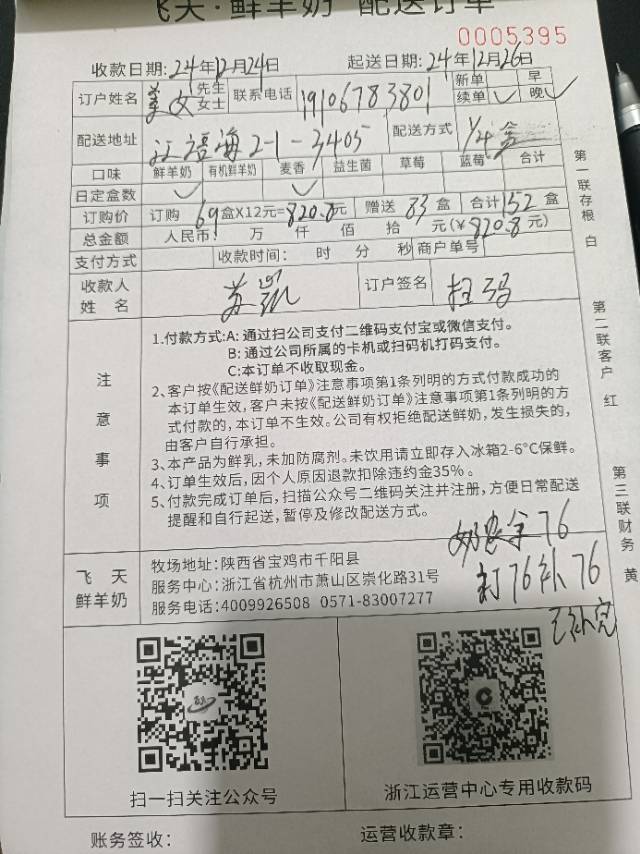 飞天·鲜羊奶 配送订单
0005395
收款日期: 24年12月24日 起送日期: 24年12月26日
订户姓名 姜女 先生 女士 联系电话 19106783801 新单 续单 ✓ 早 晚 ✓
配送地址 江语海2-1-3405 配送方式
口味 鲜羊奶 有机鲜羊奶 麦香 益生菌 草莓 蓝莓 合计
日定盒数 ✓ ✓
订购价 订购 69盒X12元=820.8元 赠送 83 盒 合计 152 盒
总金额 人民币: 万 仟 佰 拾 元(¥820.8元)
支付方式 收款时间: 时 分 秒 商户单号
收款人姓名 苏凯 订户签名 扫码
注意事项
1.付款方式:A: 通过扫公司支付二维码支付宝或微信支付。
B: 通过公司所属的卡机或扫码机打码支付。
C:本订单不收取现金。
2、客户按《配送鲜奶订单》注意事项第1条列明的方式付款成功的
本订单生效，客户未按《配送鲜奶订单》注意事项第1条列明的方
式付款的，本订单不生效。公司有权拒绝配送鲜奶，发生损失的，
由客户自行承担。
3、本产品为鲜乳，未加防腐剂。未饮用请立即存入冰箱2-6°C保鲜。
4、订单生效后，因个人原因退款扣除违约金35%。
5、付款完成订单后，扫描公众号二维码关注并注册，方便日常配送
提醒和自行起送，暂停及修改配送方式。
76
订76补76
已补完
飞天鲜羊奶
牧场地址: 陕西省宝鸡市千阳县
服务中心: 浙江省杭州市萧山区崇化路31号
服务电话: 4009926508 0571-83007277
扫一扫关注公众号
浙江运营中心专用收款码
账务签收: 运营收款章:
第一联存根 白
第二联客户 红
第三联财务 黄